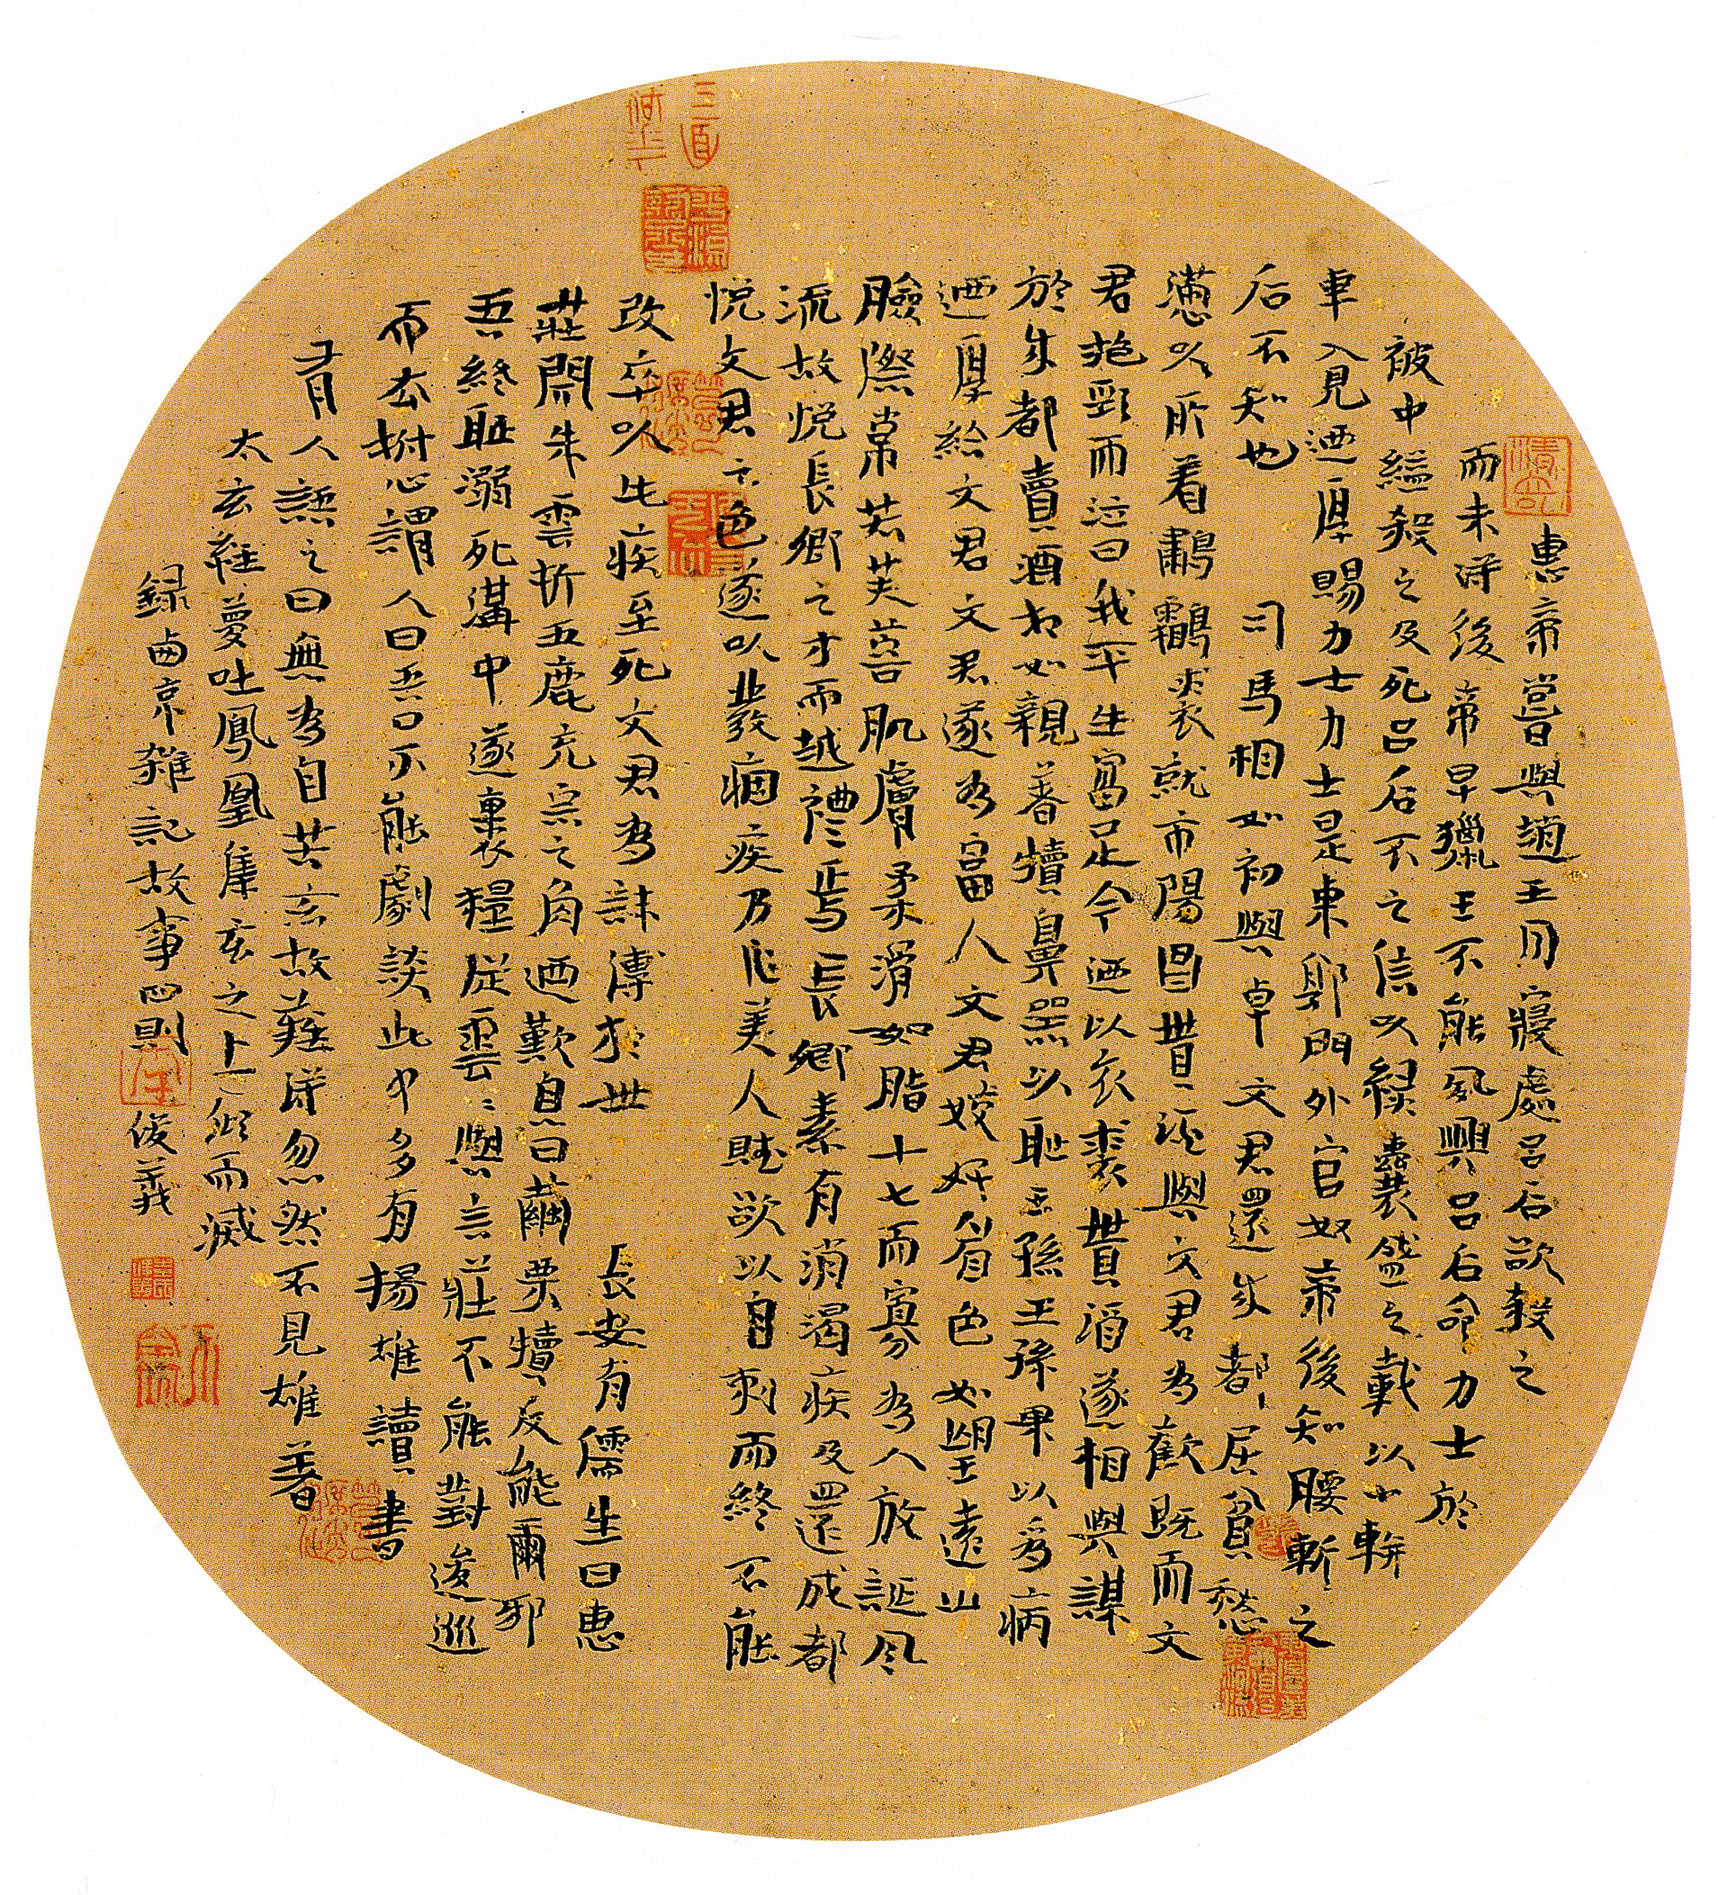 惠帝嘗與趙王同寢處呂后欲殺之
而未得後帝早獵王不能夙興呂后命力士於
被中縊殺之及死呂后不之信以綠囊盛之載以小軿
車入見迺厚賜力士力士是東郭門外官奴帝後知腰斬之
后不知也 司馬相如初與卓文君還成都居貧愁
懣以所着鷫鸘裘就市陽昌貰酒與文君為歡既而文
君抱頸而泣曰我平生富足今迺以衣裘貰酒遂相與謀
於成都賣酒相如親著犢鼻器以恥王孫王孫果以為病
迺厚給文君文君遂為富人文君姣好眉色如望遠山
臉際常若芙蓉肌膚柔滑如脂十七而寡為人放誕風
流故悅長卿之才而越禮焉長卿素有消渴疾及還成都
悅文君之色遂以發痼疾乃作美人賦欲以自刺而終不能
改卒以此疾至死文君為誄傳於世 長安有儒生曰惠
莊聞朱雲折五鹿充宗之角迺歎息曰繭栗犢反能爾邪
吾終恥溺死溝中遂裹糧從雲雲與言莊不能對逡巡
而去拊心謂人曰吾口不能劇談此中多有 揚雄讀書
有人語之曰無為自苦玄故難傳忽然不見雄著
太玄經夢吐鳳凰集玄之上須而滅
錄西京雜記故事四則 俊義